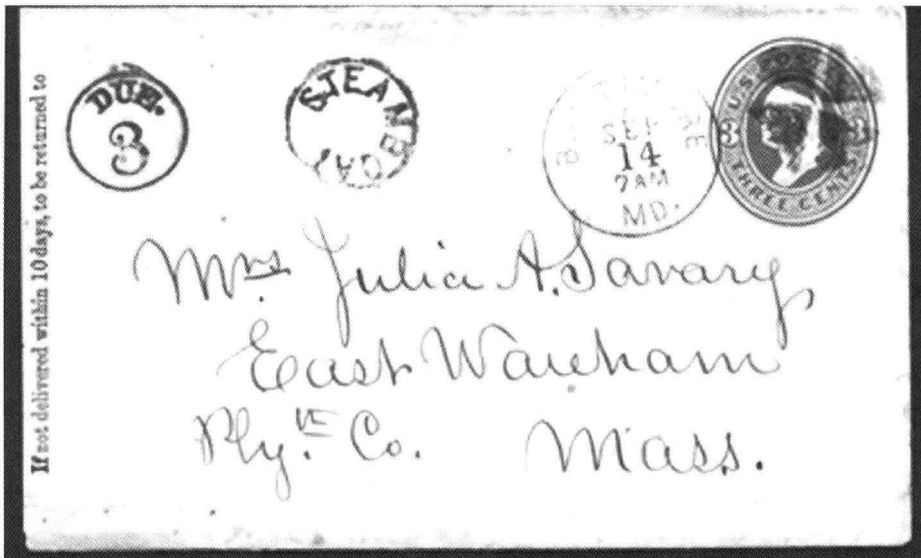 If not delivered within 10 days, to be returned to
DUE.
3
STEAMBOAT
SEP
14
7AM
MD.
U.S. POSTAGE
3 3
THREE CENTS
Mrs. Julia A. Savary
East Wareham
Ply. Co. Mass.